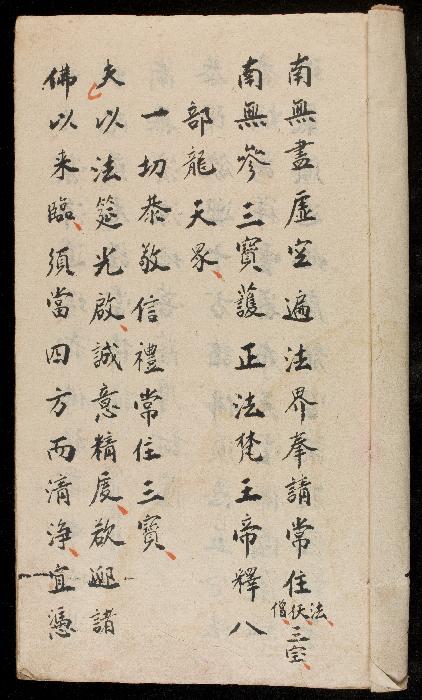 南無盡虛空遍法界奉請常住法伏僧三宝
南無參三寶護正法梵王帝釋八
部龍天眾
一切恭敬信禮常住三寶
夫以法筵光啟誠意精虔欲迎諸
佛以来臨須當四方而清净宜憑